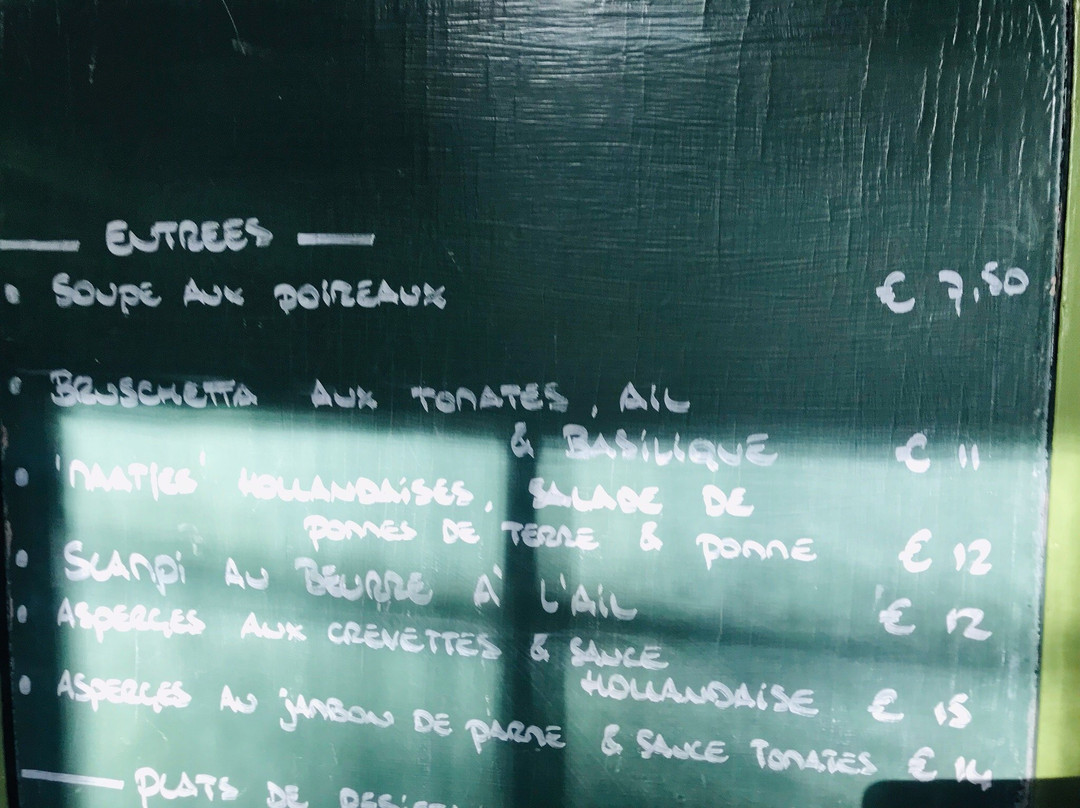 ENTREES
• SOUPE AUX POIREAUX € 7,50
• BRUSCHETTA AUX TOMATES, AIL
& BASILIQUE € 11
• 'MAATJES' HOLLANDAISES, SALADE DE
POMMES DE TERRE & POMME € 12
• SCAMPI AU BEURRE À L'AIL € 12
• ASPERGES AUX CREVETTES & SAUCE
HOLLANDAISE € 15
• ASPERGES AU JAMBON DE PARME & SAUCE TOMATES € 14
PLATS DE